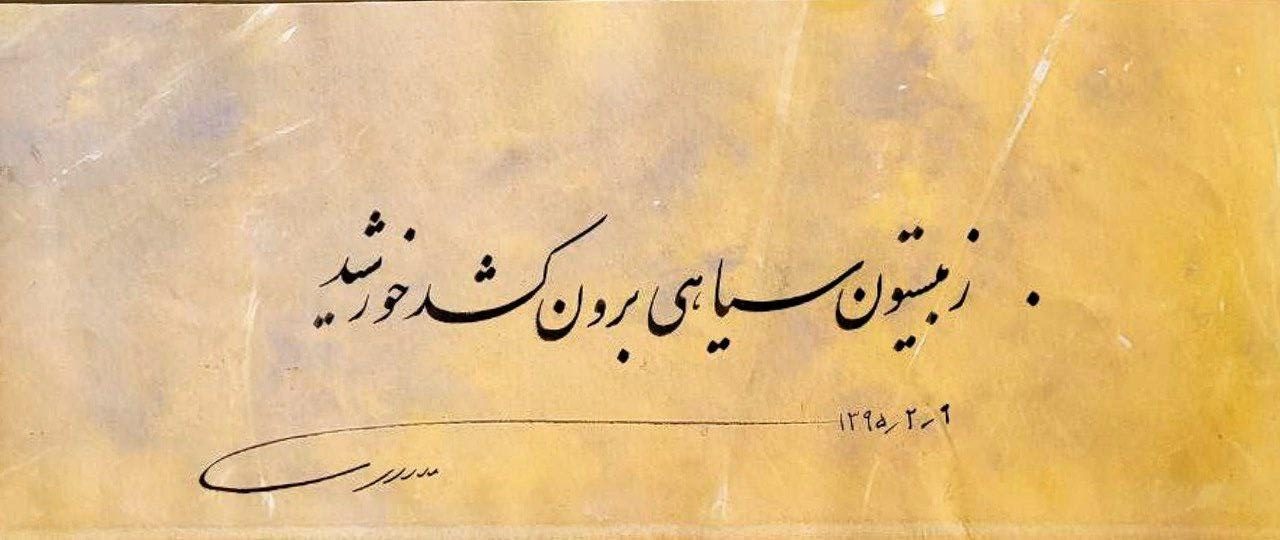 ز بیستون سیاهی برون کشد خورشید
۱۳۹۵٫۲٫۹